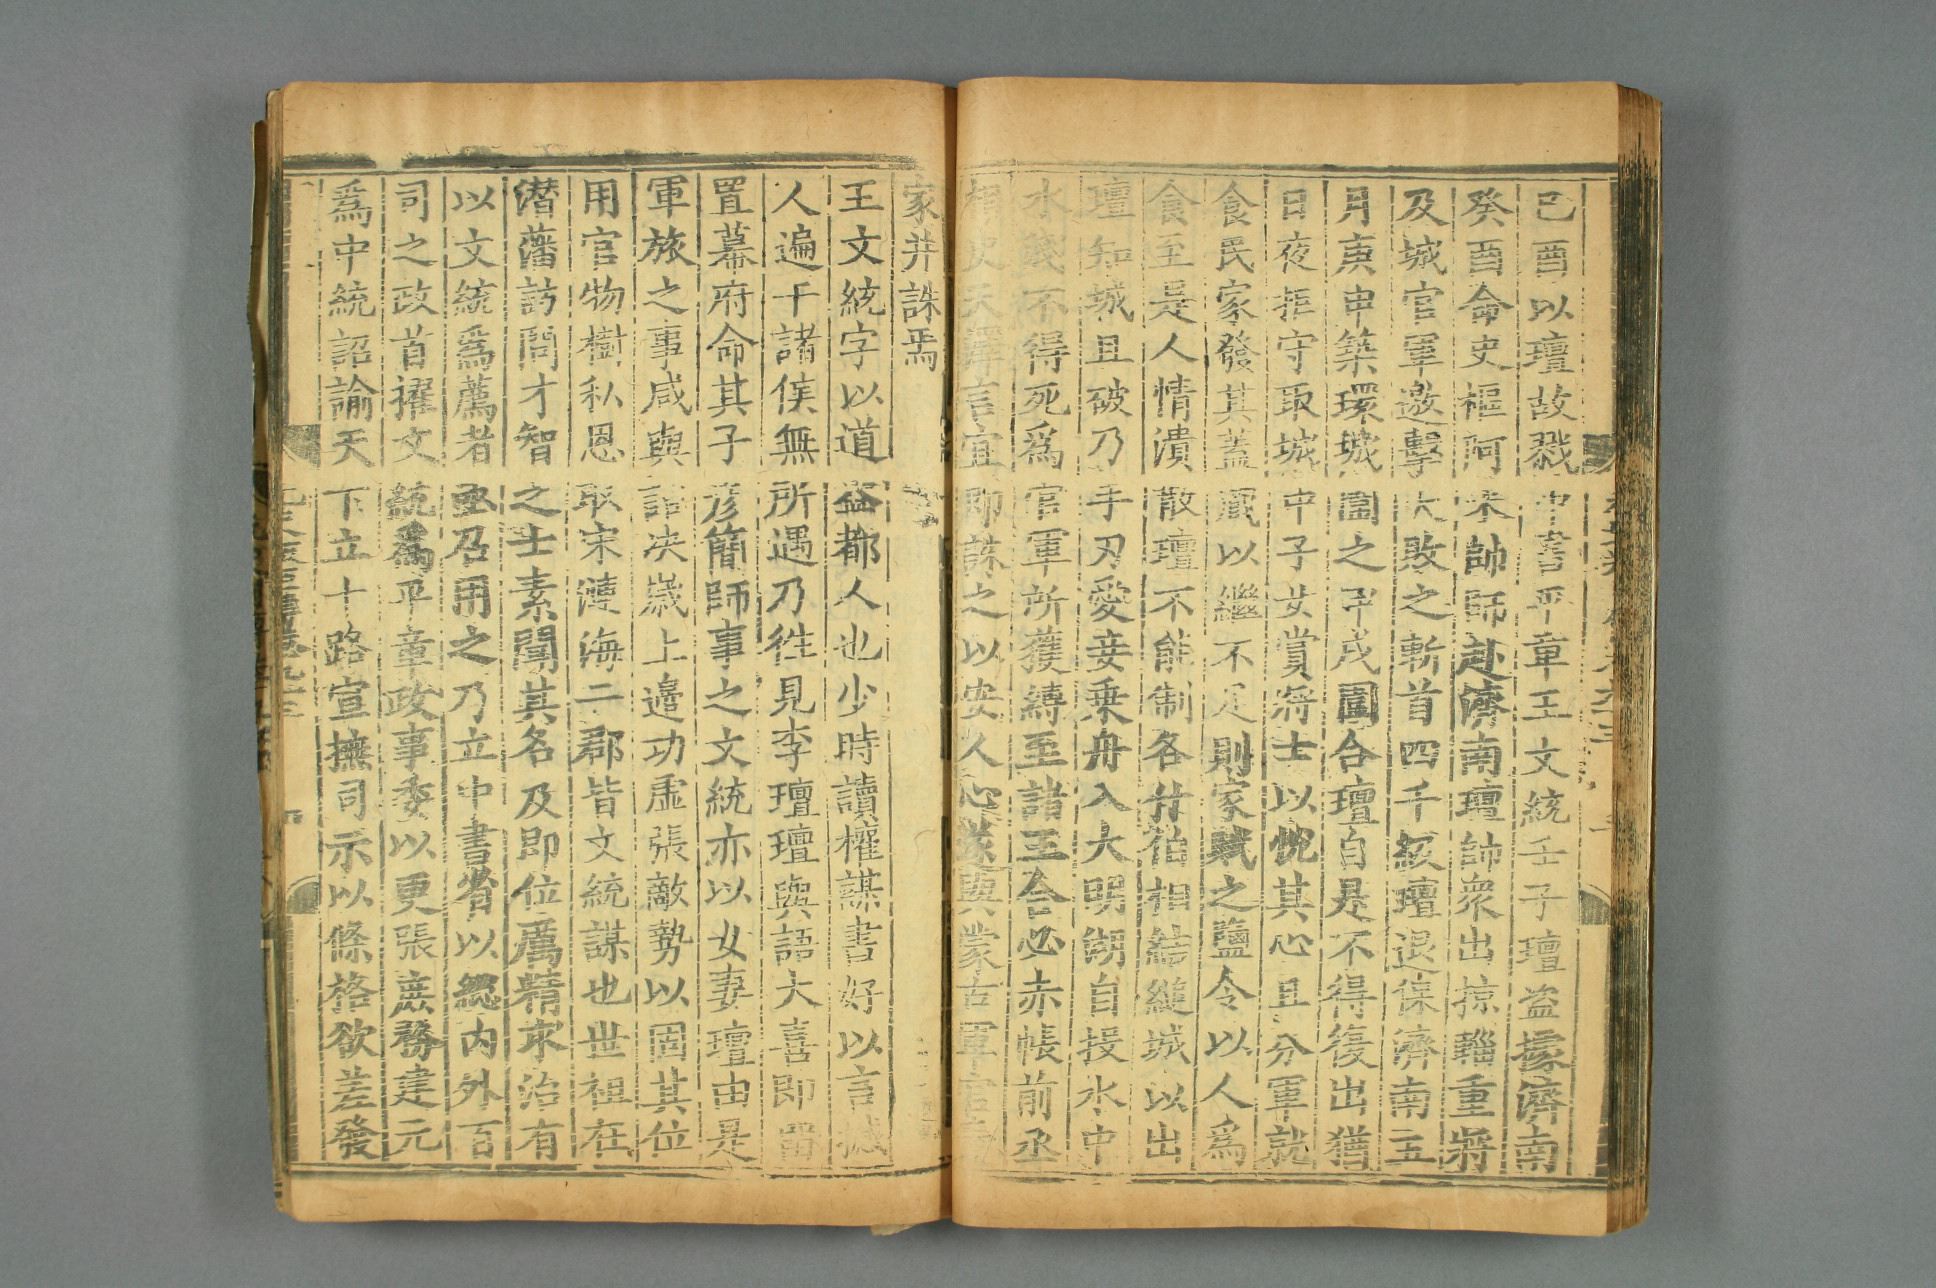 己酉以璮故戮中書平章王文統壬子璮盗據濟南
癸酉命史樞阿朮帥師赴濟南璮帥衆出掠輜重將
及城官軍邀擊大敗之斬首四千級璮退保濟南五
月庚申築環城圍之甲戌圍合璮自是不得復出猶
日夜拒守取城中子女賞將士以悅其心且分軍就
食民家發其蓋藏以繼不足則家賦之鹽令以人爲
食至是人情潰散璮不能制各什伯相結縋城以出
璮知城且破乃手刃愛妾乗舟入大明湖自投水中
水淺不得死爲官軍所獲縛至諸王合必赤帳前丞
相史天澤言宜即誅之以安人心遂與蒙古軍官
家并誅焉
王文統字以道益都人也少時讀權謀書好以言撼
人遍干諸侯無所遇乃徃見李璮璮與語大喜即留
置幕府命其子彦簡師事之文統亦以女妻璮由是
軍旅之事咸與諮决歲上邊功虚張敵勢以固其位
用官物樹私恩取宋漣海二郡皆文統謀也世祖在
潛藩訪問才智之士素聞其名及即位厲精求治有
以文統爲薦者亟召用之乃立中書省以緫内外百
司之政首擢文統爲平章政事委以更張庶務建元
爲中統詔諭天下立十路宣撫司示以條格欲差發